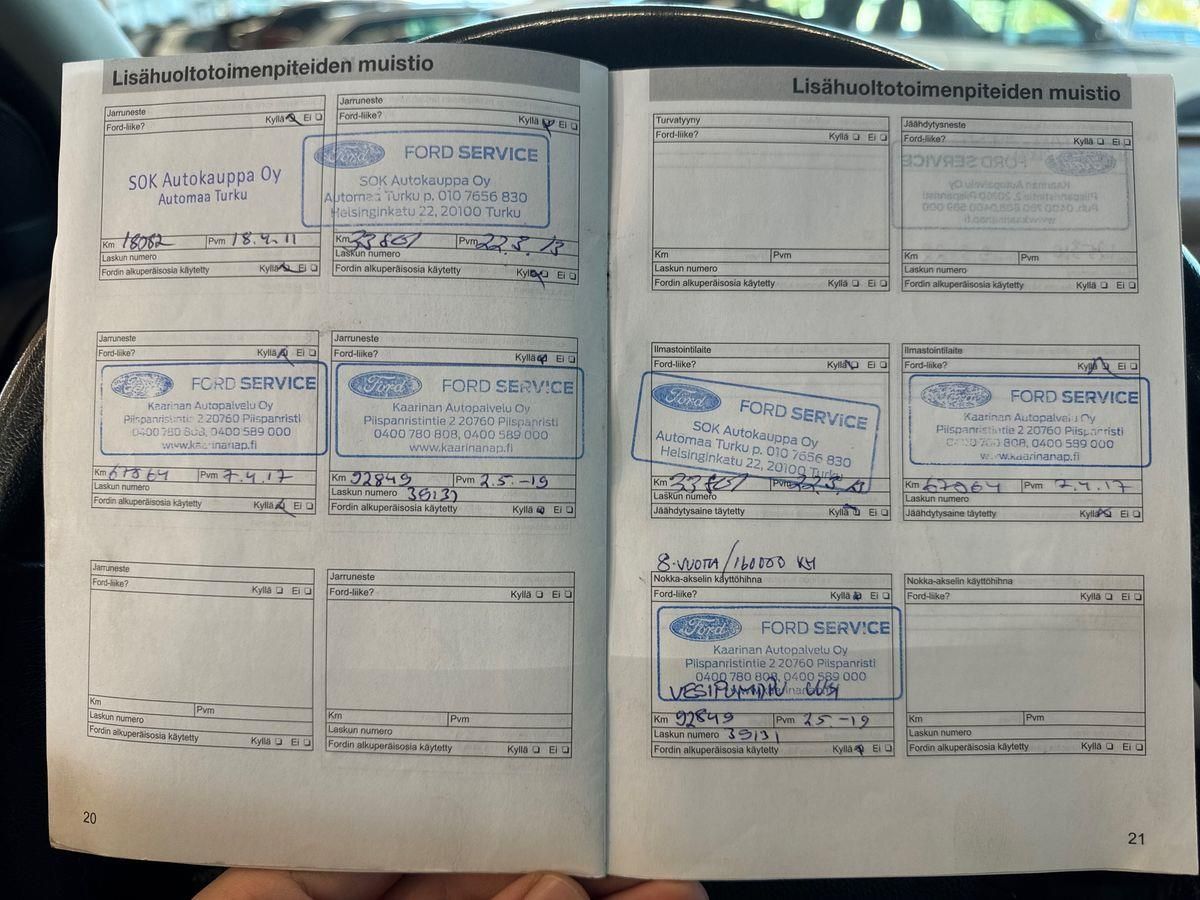 Lisähuoltotoimenpiteiden muistio
Jarruneste
Ford-liike? Kyllä Ei
SOK Autokauppa Oy
Automaa Turku
Km 18082 Pvm 18.4.11
Laskun numero
Fordin alkuperäisosia käytetty Kyllä Ei
Jarruneste
Ford-liike? Kyllä Ei
Ford FORD SERVICE
SOK Autokauppa Oy
Automaa Turku p. 010 7656 830
Helsinginkatu 22, 20100 Turku
Km 33801 Pvm 22.3.13
Laskun numero
Fordin alkuperäisosia käytetty Kyllä Ei
Jarruneste
Ford-liike? Kyllä Ei
Ford FORD SERVICE
Kaarinan Autopalvelu Oy
Piispanristintie 2 20760 Piispanristi
0400 780 808, 0400 589 000
www.kaarinanap.fi
Km 67864 Pvm 7.4.17
Laskun numero
Fordin alkuperäisosia käytetty Kyllä Ei
Jarruneste
Ford-liike? Kyllä Ei
Ford FORD SERVICE
Kaarinan Autopalvelu Oy
Piispanristintie 2 20760 Piispanristi
0400 780 808, 0400 589 000
www.kaarinanap.fi
Km 92849 Pvm 2.5.-19
Laskun numero 39131
Fordin alkuperäisosia käytetty Kyllä Ei
Jarruneste
Ford-liike? Kyllä Ei
Km Pvm
Laskun numero
Fordin alkuperäisosia käytetty Kyllä Ei
Jarruneste
Ford-liike? Kyllä Ei
Km Pvm
Laskun numero
Fordin alkuperäisosia käytetty Kyllä Ei
20
Lisähuoltotoimenpiteiden muistio
Turvatyyny
Ford-liike? Kyllä Ei
Km Pvm
Laskun numero
Fordin alkuperäisosia käytetty Kyllä Ei
Jäähdytysneste
Ford-liike? Kyllä Ei
Km Pvm
Laskun numero
Fordin alkuperäisosia käytetty Kyllä Ei
Ilmastointilaite
Ford-liike? Kyllä Ei
Ford FORD SERVICE
SOK Autokauppa Oy
Automaa Turku p. 010 7656 830
Helsinginkatu 22, 20100 Turku
Km 33801 Pvm 22.3.13
Laskun numero
Jäähdytysaine täytetty Kyllä Ei
Ilmastointilaite
Ford-liike? Kyllä Ei
Ford FORD SERVICE
Kaarinan Autopalvelu Oy
Piispanristintie 2 20760 Piispanristi
0400 780 808, 0400 589 000
www.kaarinanap.fi
Km 67864 Pvm 7.4.17
Laskun numero
Jäähdytysaine täytetty Kyllä Ei
8. VUOTTA/160000 KM
Nokka-akselin käyttöhihna
Ford-liike? Kyllä Ei
Ford FORD SERVICE
Kaarinan Autopalvelu Oy
Piispanristintie 2 20760 Piispanristi
0400 780 808, 0400 589 000
VESIPUMPPU UUSI
Km 92849 Pvm 2.5.-19
Laskun numero 39131
Fordin alkuperäisosia käytetty Kyllä Ei
Nokka-akselin käyttöhihna
Ford-liike? Kyllä Ei
Km Pvm
Laskun numero
Fordin alkuperäisosia käytetty Kyllä Ei
21